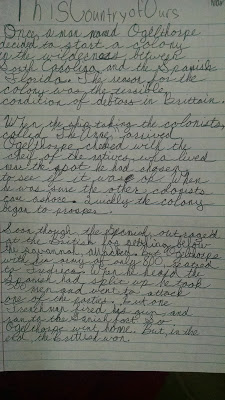 This Country of Ours
Once, a man named Ogelthorpe
decided to start a colony
in the wilderness between
South Carolina and the Spanish
Florida. The reason for the
colony was the terrible
condition of debtors in
When the ship taking the colonists,
called The Anne, arrived
Ogelthorpe, checked with the
chief of the natives who lived
near the spot he had chosen
to see if it was ok. When
he was sure the other
came ashore. Quickly the colony
began to prosper.
Soon though, the
at the British for settling below
the
with his army of only
to Frederica. When he heard the
Spanish had split up he took
men and went to attack
one of the parties, but one
Frenchman fired his gun, and
ran to the Spanish fort. So
Ogelthorpe went home. But, in the
end, the British won.